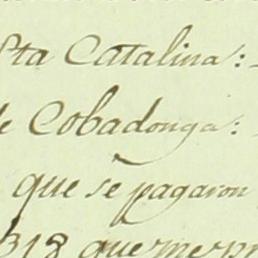 Sta Catalina:
de Cobadonga:
que se pagaron
318 que me